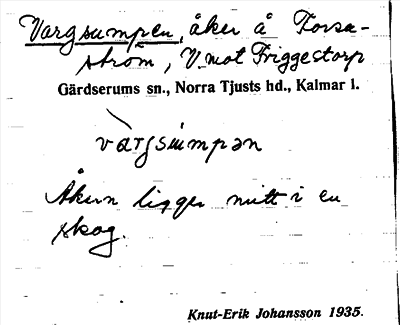 Vargsumpen, åker å Forsa-
ström, V mot Friggestorp
Gärdserums sn., Norra Tjusts hd., Kalmar l.
vàrgsùmpən
Åkern ligger mitt i en
skog.
Knut-Erik Johansson 1935.